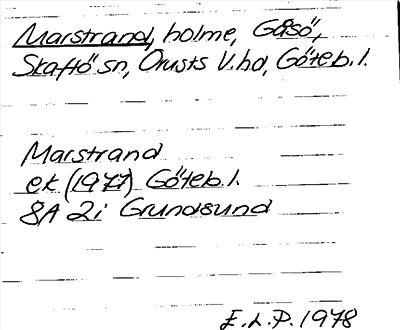 Marstrand, holme, Gåsö,
Skaftö sn, Orusts V.hd, Göteb.l.
Marstrand
ek (1977) Göteb.l.
8A 2i Grundsund
E.L.P. 1978